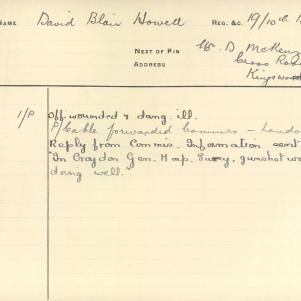 NAME David Blair Howell REG. &C. 19/10th
NEXT OF KIN D McKen
ADDRESS Cross Roa
Kingswood
1/P Off. wounded & dang. ill.
P/Cable forwarded Commrs – London
Reply from Commis. Information sent
"In Croydon Gen. Hosp. Surry, gunshot wo
doing well."